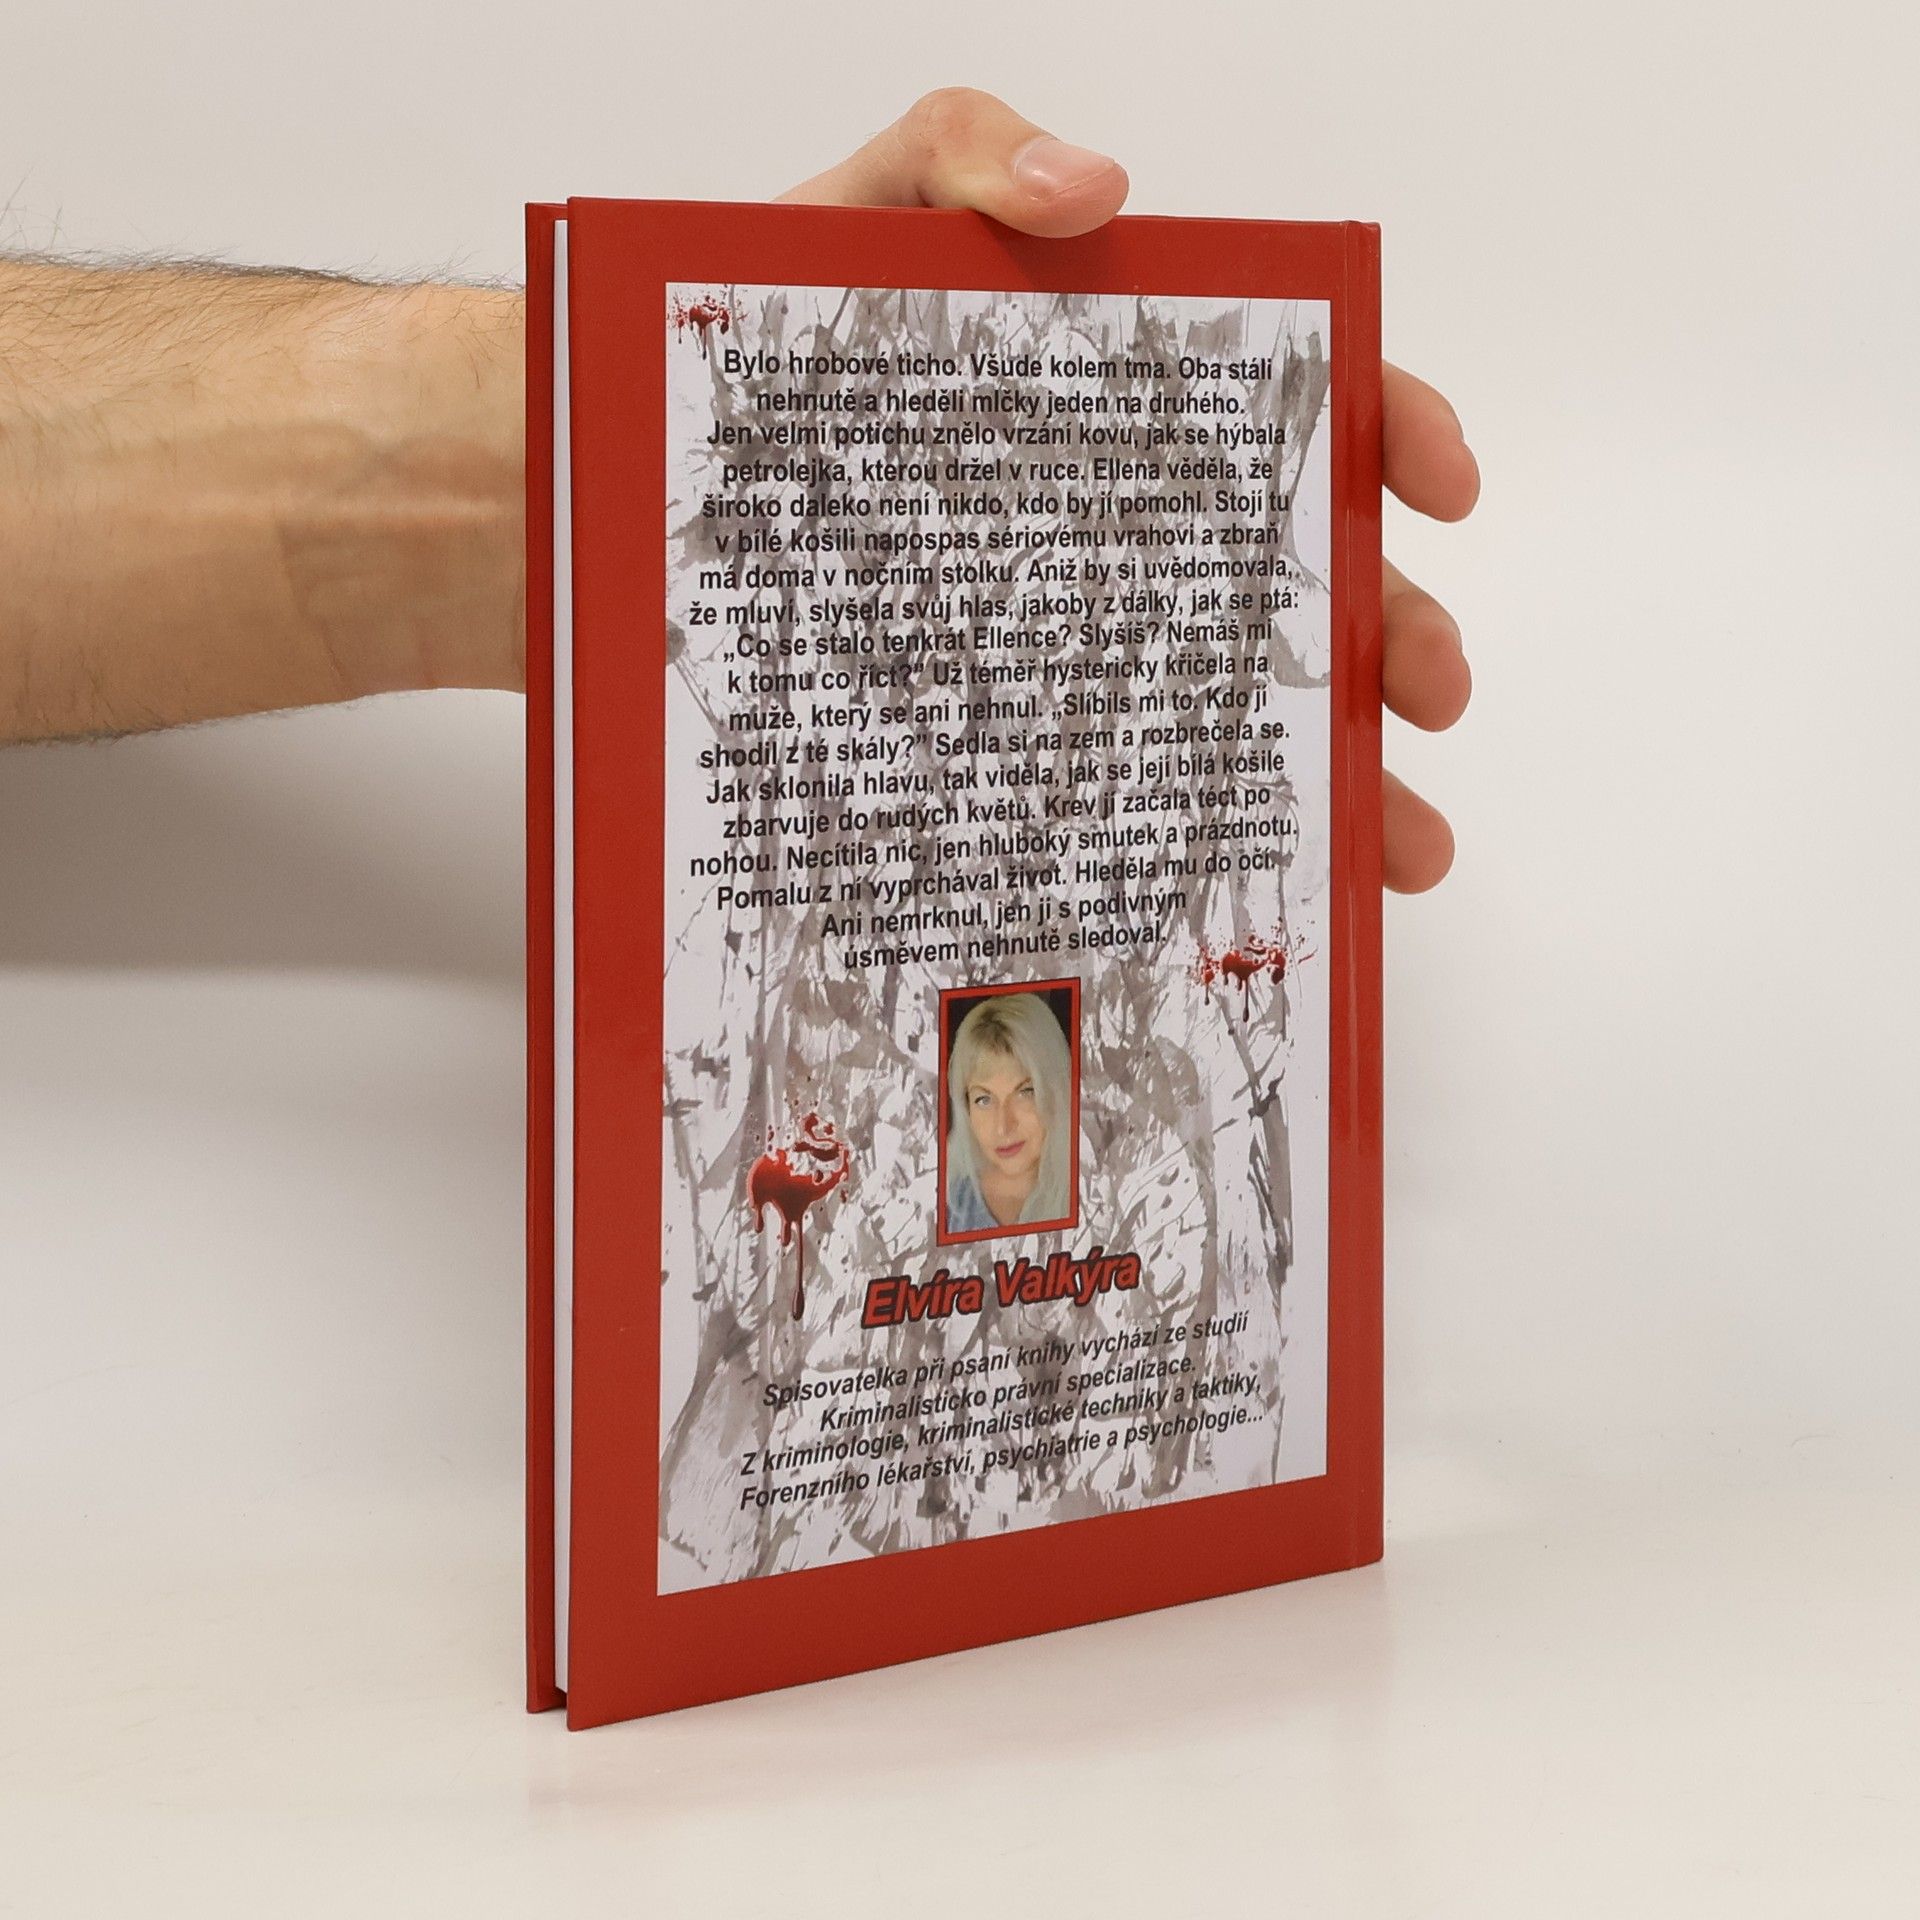 Bylo hrobové ticho. Všude kolem tma. Oba stáli
nehnutě a hleděli mlčky jeden na druhého.
Jen velmi potichu znělo vrzání kovu, jak se hýbala
petrolejka, kterou držel v ruce. Ellena věděla, že
široko daleko není nikdo, kdo by jí pomohl. Stojí tu
v bílé košili napospas sériovému vrahovi a zbraň
má doma v nočním stolku. Aniž by si uvědomovala,
že mluví, slyšela svůj hlas, jakoby z dálky, jak se ptá:
„Co se stalo tenkrát Ellence? Slyšíš? Nemáš mi
k tomu co říct?” Už téměř hystericky křičela na
muže, který se ani nehnul. „Slíbils mi to. Kdo jí
shodil z té skály?” Sedla si na zem a rozbrečela se.
Jak sklonila hlavu, tak viděla, jak se její bílá košile
zbarvuje do rudých květů. Krev jí začala téct po
nohou. Necítila nic, jen hluboký smutek a prázdnotu.
Pomalu z ní vyprchával život. Hleděla mu do očí.
Ani nemrknul, jen ji s podivným
úsměvem nehnutě sledoval.
Elvíra Valkýra
Spisovatelka při psaní knihy vychází ze studií
Kriminalisticko právní specializace.
Z kriminologie, kriminalistické techniky a taktiky,
Forenzního lékařství, psychiatrie a psychologie...